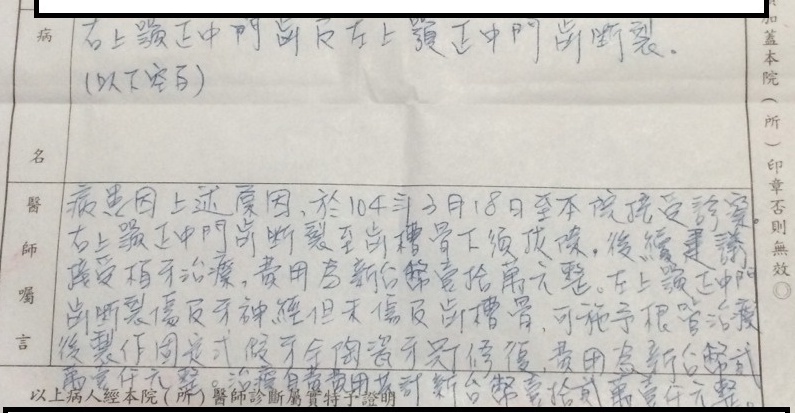 病名
右上顎正中門齒及左上顎正中門齒斷裂。
(以下空白)
醫師囑言
病患因上述原因,於104年3月18日至本院接受診察。
右上顎正中門齒斷裂至齒槽骨下須拔除,後續建議
接受植牙治療,費用為新台幣壹拾萬元整。左上顎正中門
齒斷裂傷及牙神經但未傷及齒槽骨,可施予根管治療
後製作固定式假牙全陶瓷牙冠修復,費用為新台幣貳
萬壹仟元整。治療自費費用共計新台幣壹拾貳萬壹仟元整。
以上病人經本院(所)醫師診斷屬實特予證明
加蓋本院(所)印章否則無效◎